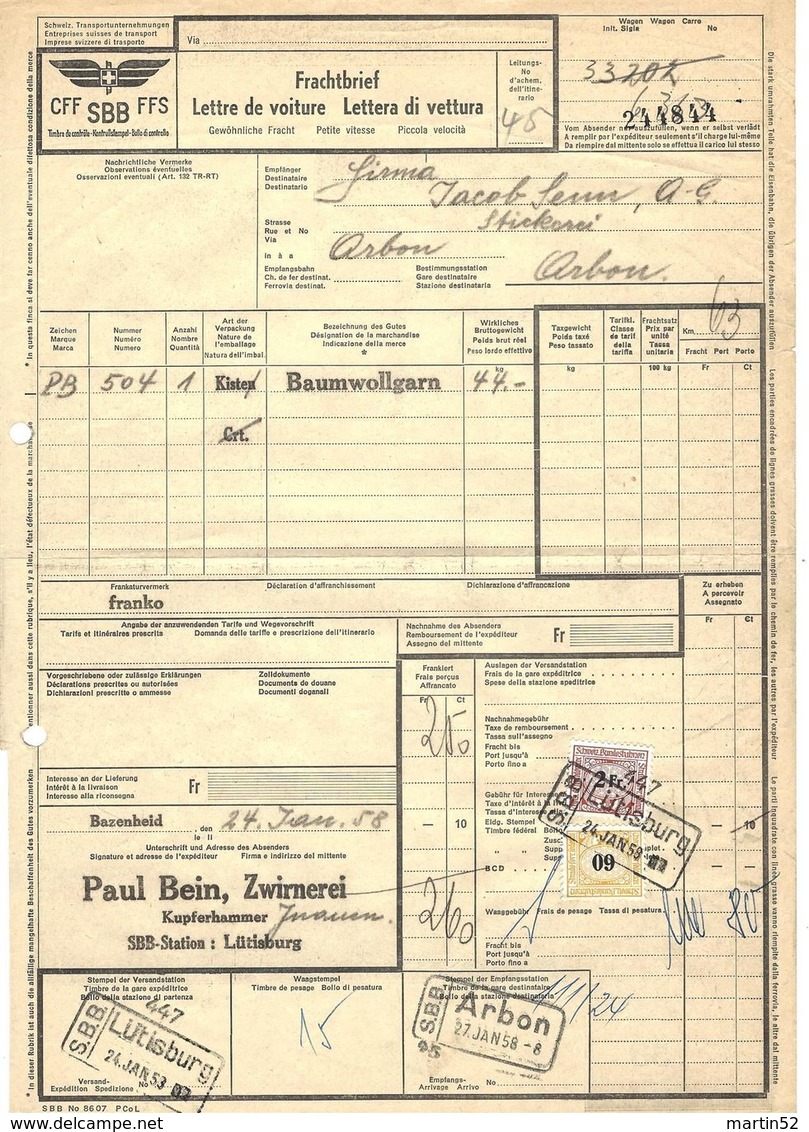 Schweiz. Transportunternehmungen
Entreprises suisses de transport
Imprese svizzere di trasporto
Via
Wagen Wagon Carro
Init. Sigle No
CFF SBB FFS
Timbre de contrôle - Kontrollstempel - Bollo di controllo
Frachtbrief
Lettre de voiture Lettera di vettura
Gewöhnliche Fracht Petite vitesse Piccola velocità
Leitungs-
No
d'achem.
dell'itine-
rario
45
33202
244844
Vom Absender nur auszufüllen, wenn er selbst verlädt
A remplir par l'expéditeur seulement s'il charge lui-même
Da riempire dal mittente solo se effettua il carico lui stesso
Nachrichtliche Vermerke
Observations éventuelles
Osservazioni eventuali (Art. 132 TR-RT)
Empfänger
Destinataire
Destinatario
Firma
Jacob Senn, A-G.
Stickerei
Strasse
Rue et No
Via
in à a
Arbon
Empfangsbahn
Ch. de fer destinat.
Ferrovia destinat.
Bestimmungsstation
Gare destinataire
Stazione destinataria
Arbon.
Zeichen
Marque
Marca
Nummer
Numéro
Numero
Anzahl
Nombre
Quantità
Art der
Verpackung
Nature de
l'emballage
Natura dell'imbal.
Bezeichnung des Gutes
Désignation de la marchandise
Indicazione della merce
*
Wirkliches
Bruttogewicht
Poids brut réel
Peso lordo effettivo
Taxgewicht
Poids taxé
Peso tassato
Tarifkl.
Classe
de tarif
della
tariffa
Frachtsatz
Prix par
unité
Tassa
unitaria
Km 63
Fracht Port Porto
kg kg 100 kg Fr Ct
PB 504 1 Kisten Baumwollgarn 44.-
Crt.
Frankaturvermerk Déclaration d'affranchissement Dichiarazione d'affrancazione
franko
Zu erheben
A percevoir
Assegnato
Angabe der anzuwendenden Tarife und Wegevorschrift
Tarifs et itinéraires prescrits Domanda delle tariffe e prescrizione dell'itinerario
Nachnahme des Absenders
Remboursement de l'expéditeur
Assegno del mittente
Fr
Fr Ct
Vorgeschriebene oder zulässige Erklärungen
Déclarations prescrites ou autorisées
Dichiarazioni prescritte o ammesse
Zolldokumente
Documents de douane
Documenti doganali
Frankiert
Frais perçus
Affrancato
Fr Ct
250
Auslagen der Versandstation
Frais de la gare expéditrice
Spese della stazione speditrice
Nachnahmegebühr
Taxe de remboursement
Tassa sull'assegno
Fracht bis
Port jusqu'à
Porto fino a
Interesse an der Lieferung
Intérêt à la livraison
Interesse alla riconsegna
Fr
Gebühr für Interesse
Taxe d'intérêt à la
Tassa d'interesse
Eidg. Stempel
Timbre fédéral Bollo
BCD
Schweiz. Bundesbahnen
2 Fr.
60
447
SBB Lütisburg
24.JAN 58
– 10
– 10
Bazenheid , den 24. Jan. 58
le il
Unterschrift und Adresse des Absenders
Signature et adresse de l'expéditeur Firma e indirizzo del mittente
Paul Bein, Zwirnerei
Kupferhammer
SBB-Station : Lütisburg
260
Waaggebühr Frais de pesage Tassa di pesatura
80
Fracht bis
Port jusqu'à
Porto fino a
Stempel der Versandstation
Timbre de la gare expéditrice
Bollo della stazione di partenza
Waagstempel
Timbre de pesage Bollo di pesatura
Stempel der Empfangsstation
Timbre de la gare destinataire
Bollo della stazione destinataria
447
S.B.B. Lütisburg
24.JAN 53
15
S.B.B. Arbon
27.JAN 58 - 8
45
24
Versand-
Expédition Spedizione No
Empfangs-
Arrivage Arrivo No
SBB No 8607 PCoL
martin52